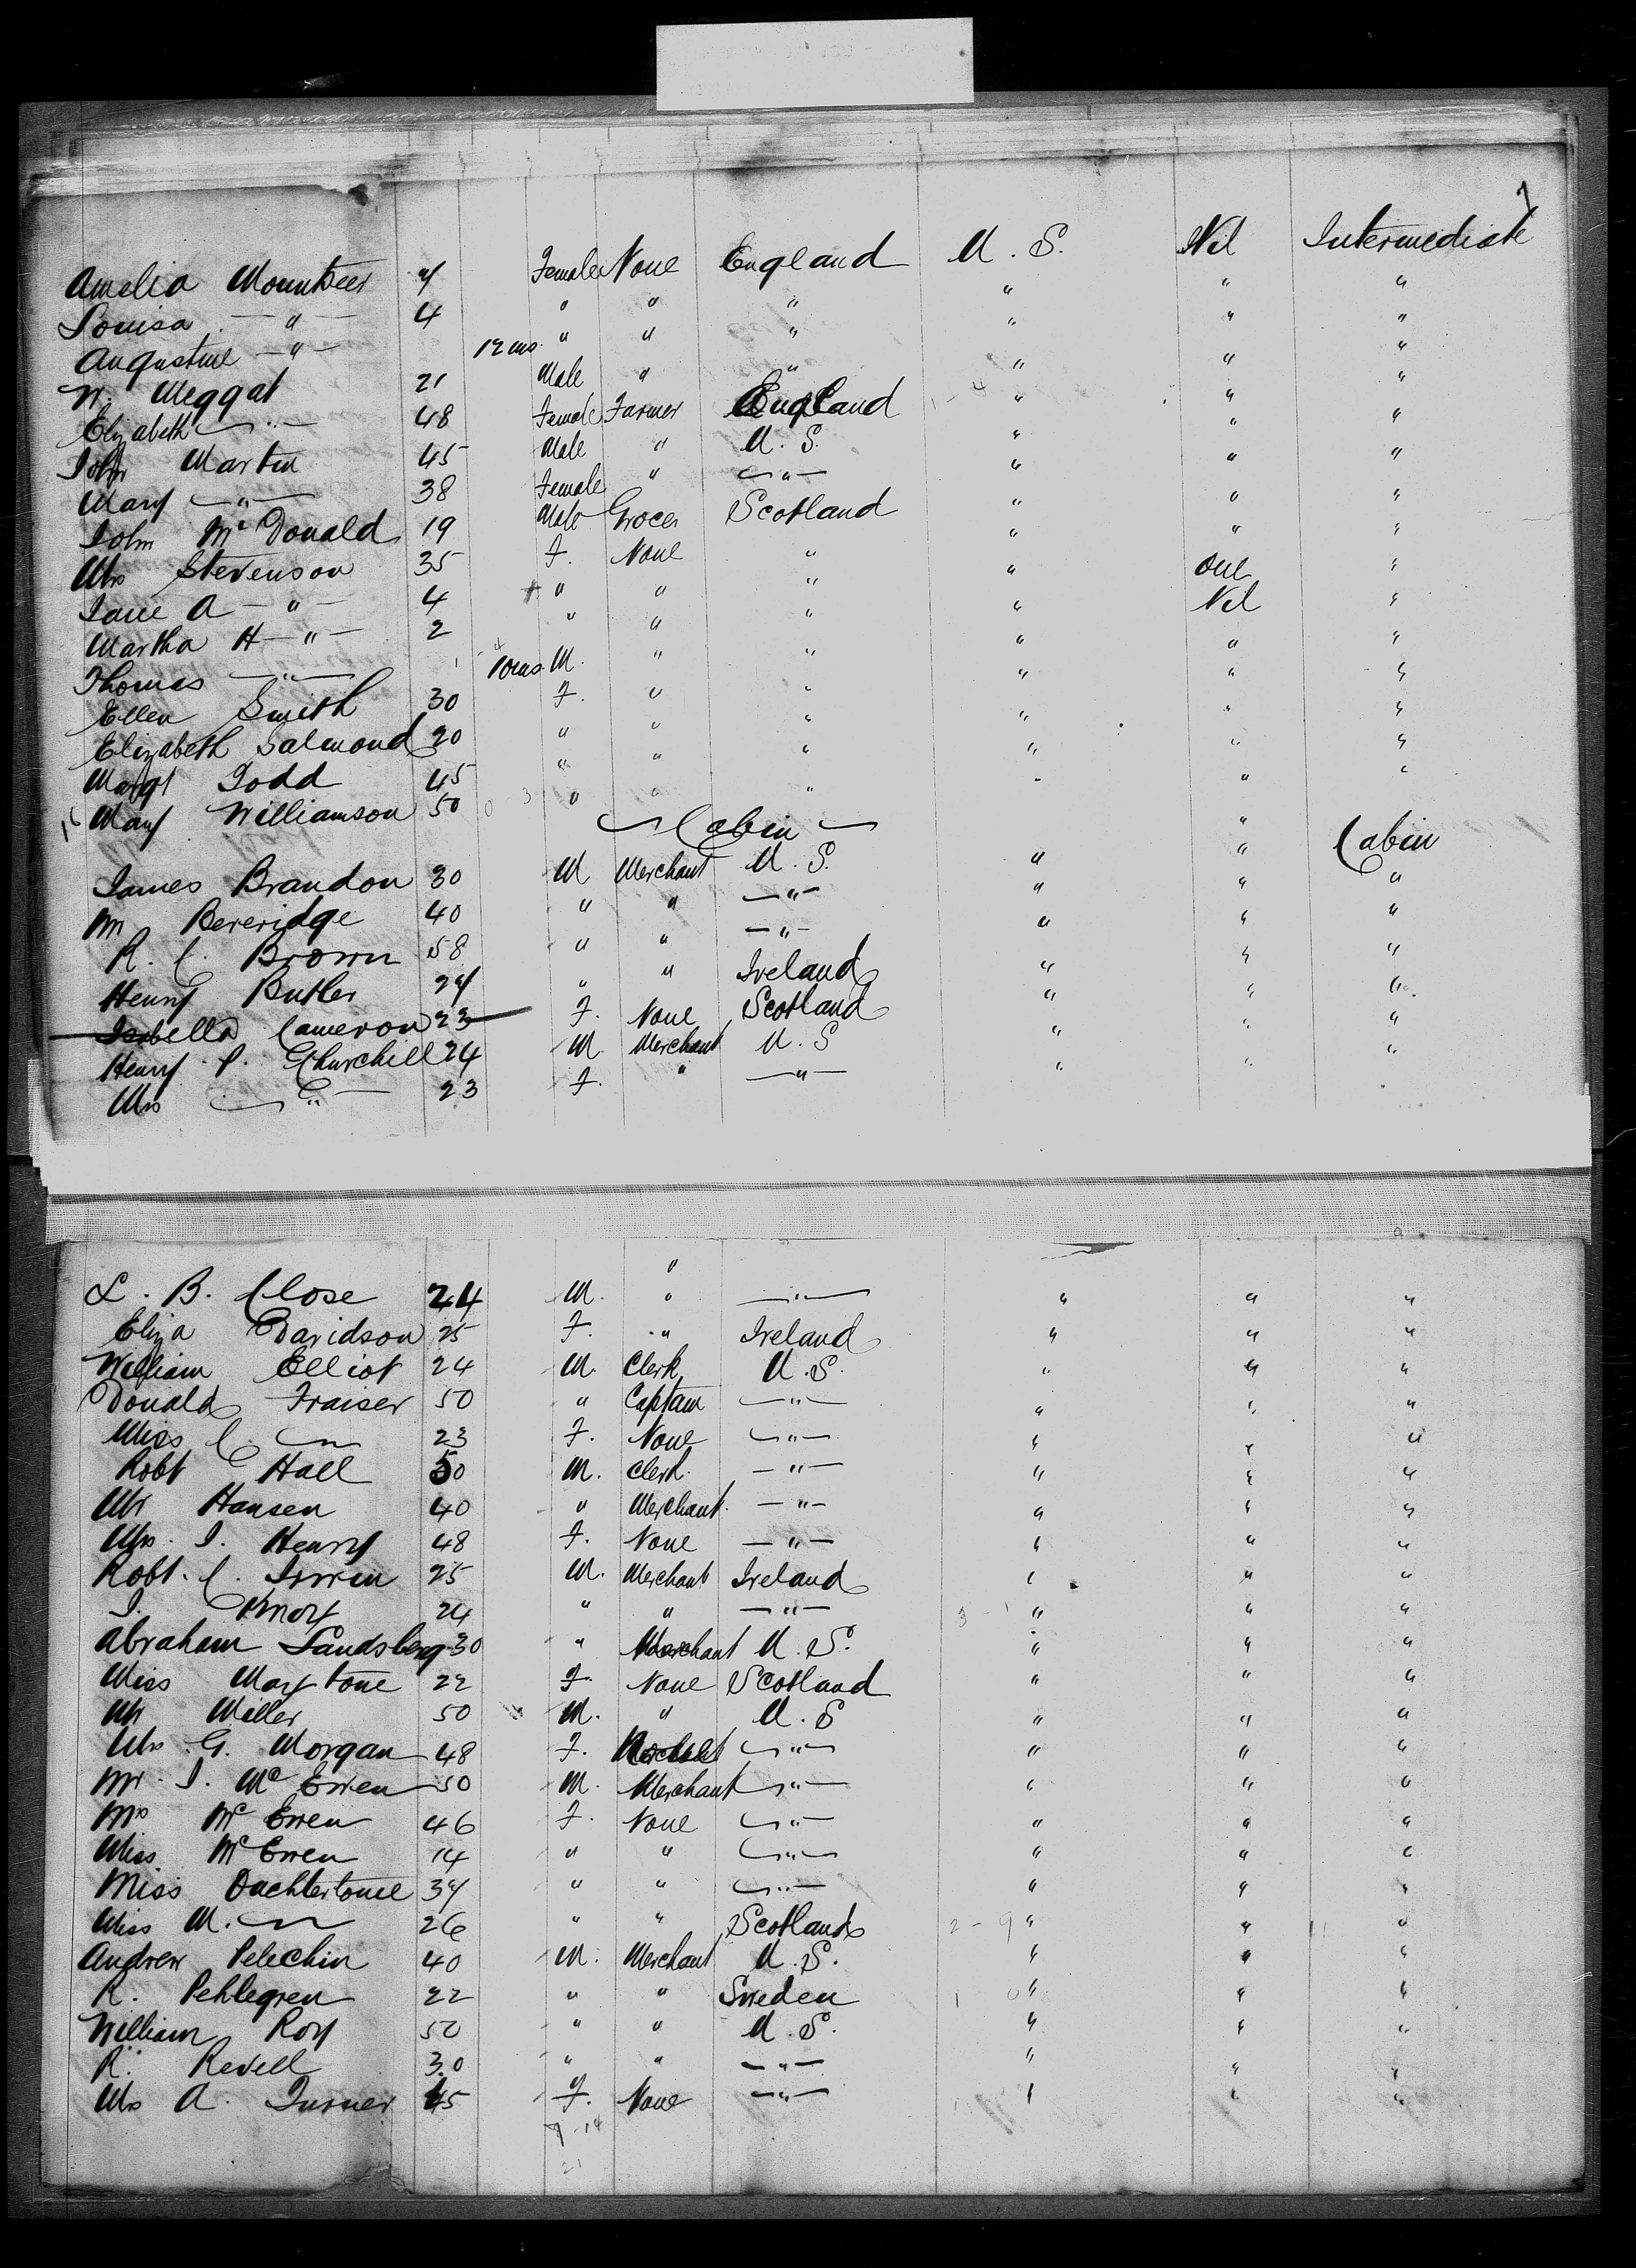 7
Amelia Mounteer 7 Female None England U. S. Nil Intermediate
Louisa — " — 4 " " " " " "
Augustine — " — 12 ms. " " " " " "
W. Meggat 21 Male " " " " "
Elizabeth — " — 48 Female Farmer England " " "
John Martin 45 Male " U. S. " " "
Mary — " — 38 Female " — " — " " "
John McDonald 19 Male Grocer Scotland " " "
Mrs Stevenson 35 F. None " " One "
Jane A — " — 4 " " " " Nil "
Martha H — " — 2 " " " " " "
Thomas — " — 10 ms. M. " " " " "
Ellen Smith 30 F. " " " " "
Elizabeth Salmond 20 " " " " " "
Margt Todd 45 " " " " " "
16 Mary Williamson 50 " " " " "
— Cabin —
James Brandon 30 M Merchant U. S. " " Cabin
Mr Beveridge 40 " " — " — " " "
R. C. Brown 58 " " — " — " " "
Henry Butler 27 " " Ireland " " "
Isabella Cameron 23 F. None Scotland " " "
Henry P. Churchill 24 M. Merchant U. S " " "
Mrs — " — 23 F. " — " — " " "
L. B. Close 24 M. " — " — " " "
Eliza Davidson 25 F. " Ireland " " "
William Elliot 24 M. Clerk U. S. " " "
Donald Fraiser 50 " Captain — " — " " "
Miss C. — 23 F. None — " — " " "
Robt Hall 50 M. Clerk — " — " " "
Mr Hansen 40 " Merchant — " — " " "
Mrs. J. Henry 48 F. None — " — " " "
Robt. C. Irwin 25 M. Merchant Ireland " " "
J. Knox 24 " " — " — " " "
Abraham Landsberg 30 " Merchant U. S. " " "
Miss Maxtone 22 F. None Scotland " " "
Mr Miller 50 M. " U. S " " "
Mrs. G. Morgan 48 F. — " — " " "
Mr. J. McEwen 50 M. Merchant — " — " " "
Mrs McEwen 46 F. None — " — " " "
Miss McEwen 14 " " — " — " " "
Miss Ouchtertone 37 " " — " — " " "
Miss M. — 26 " " Scotland 2 - 9 " " "
Andrew Pelechin 40 M. Merchant U. S. " " "
R. Pehlegren 22 " " Sweden " " "
William Roy 50 " " U. S. " " "
R. Revell 30 " " — " — " " "
Mrs A. Turner 45 F. None — " — " " "
7 - 14
21